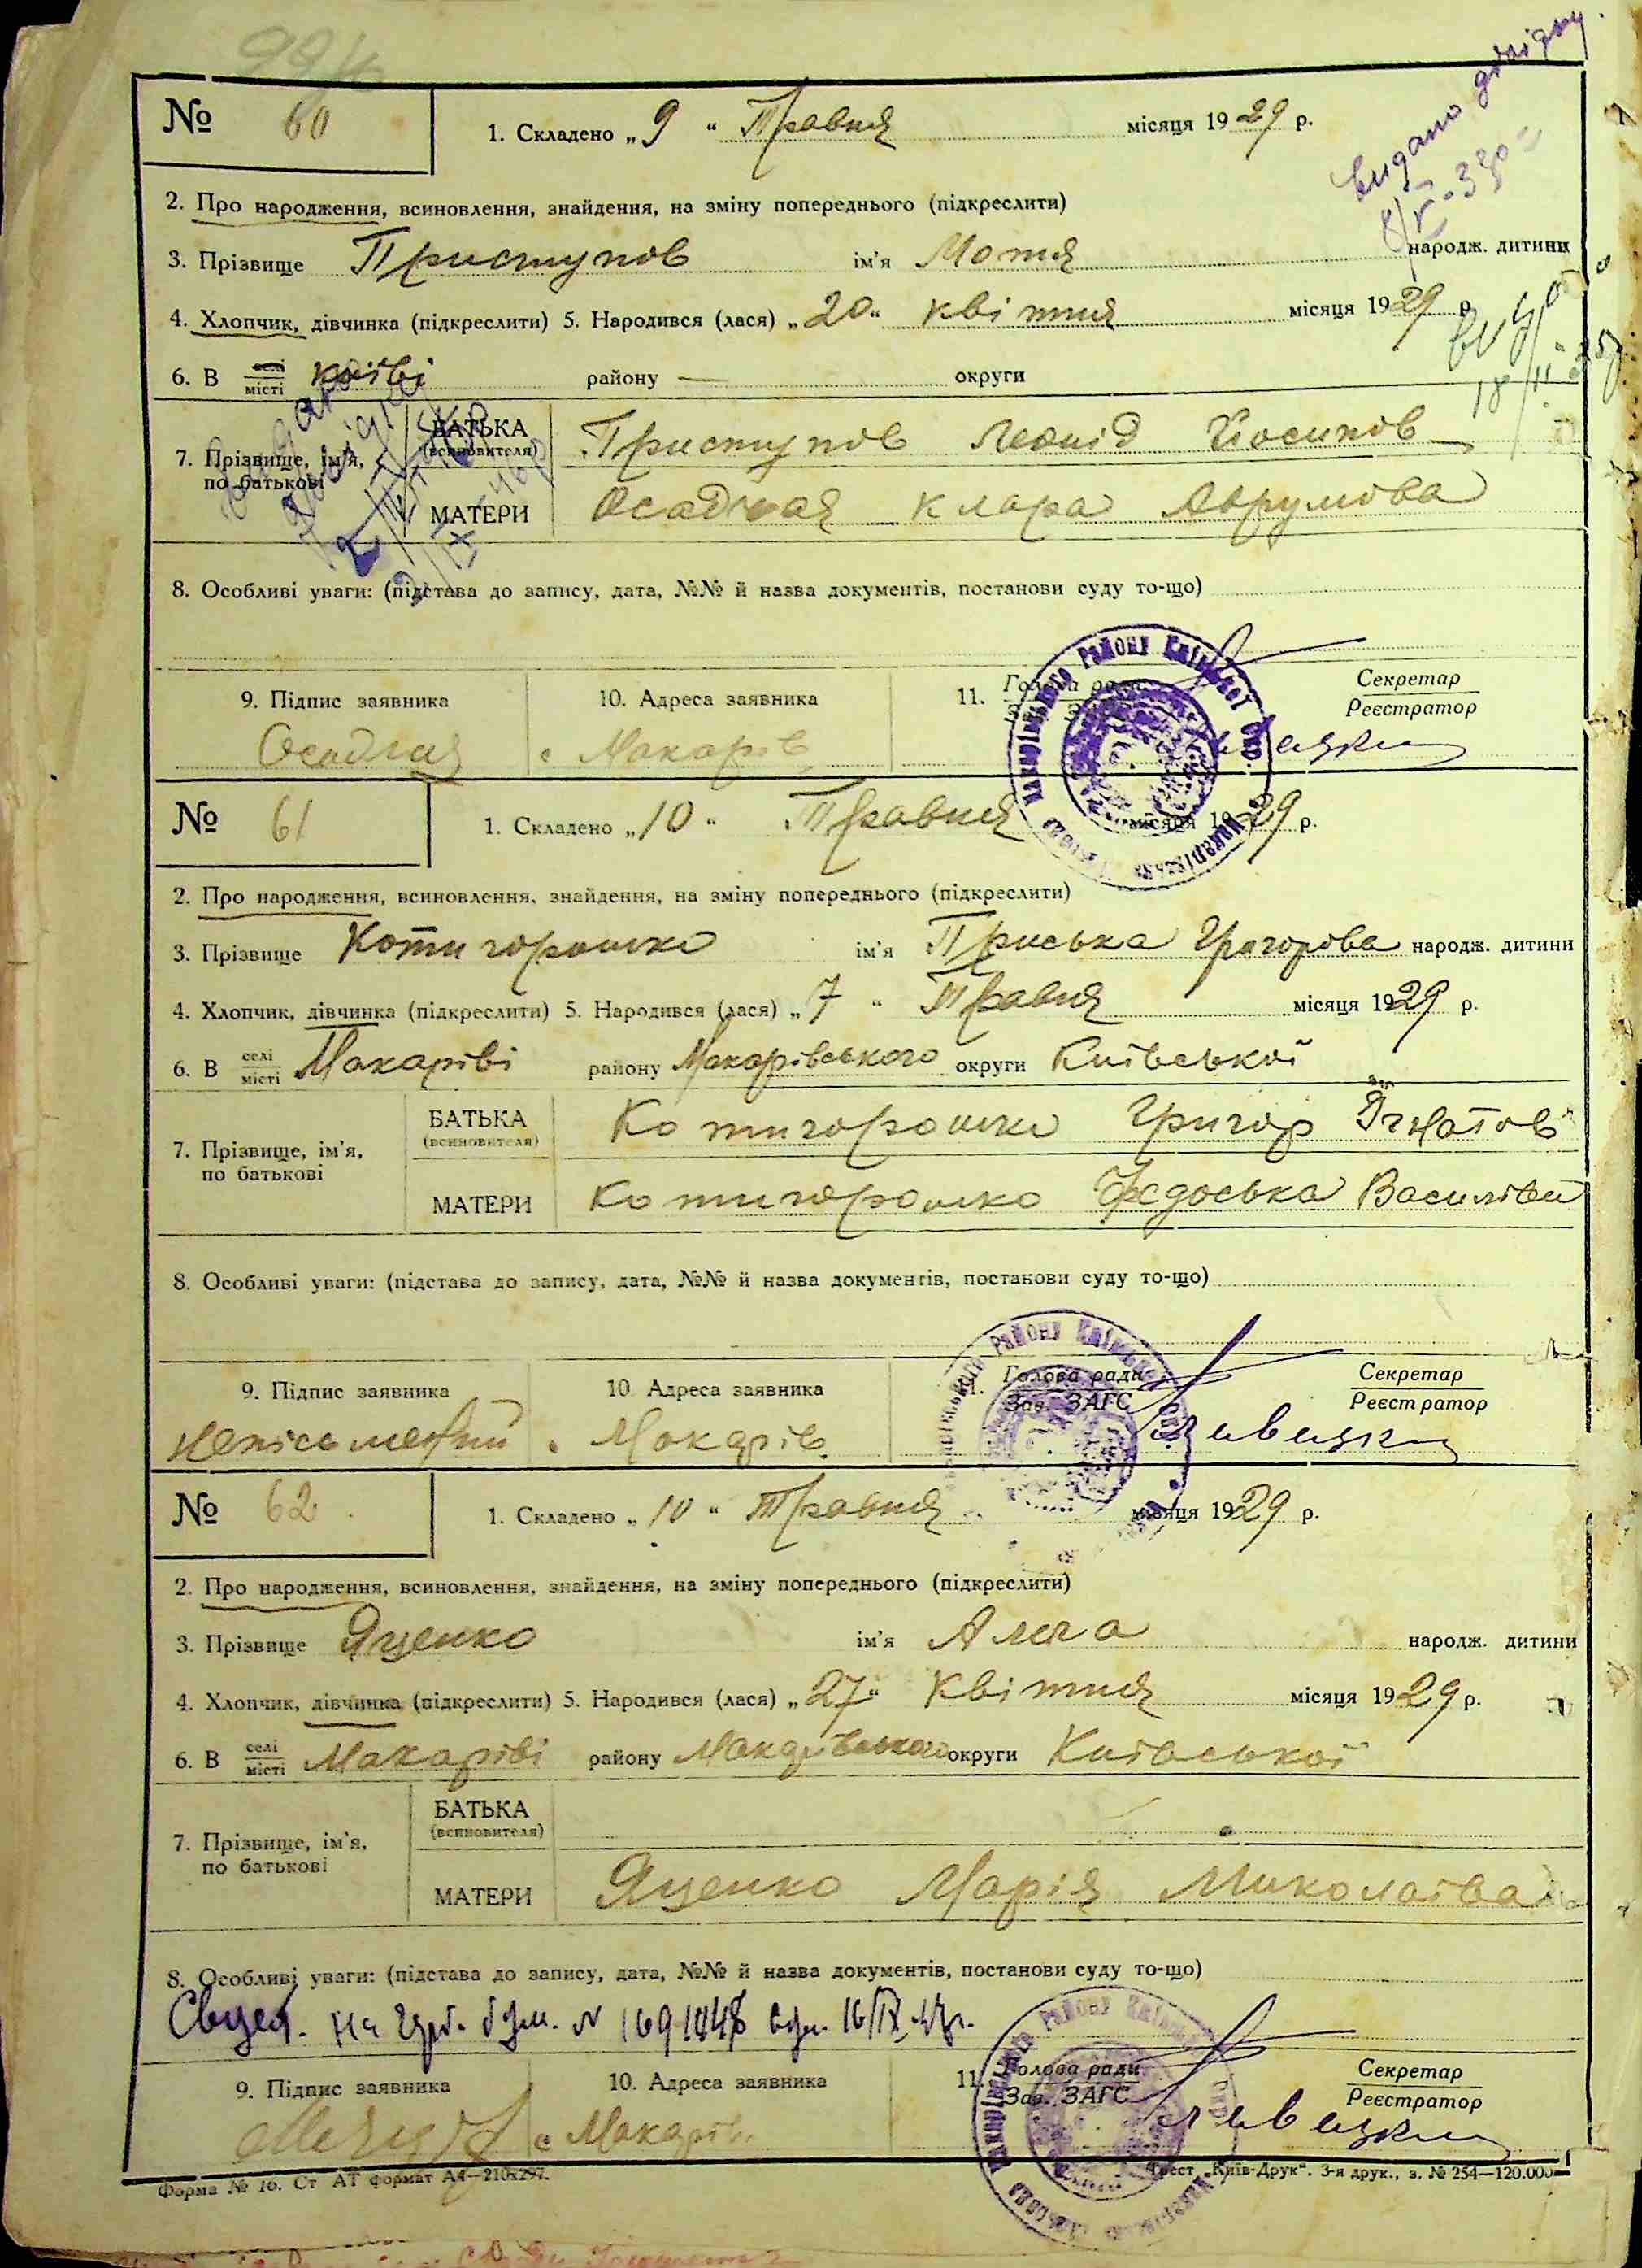 № 60
1. Складено „9“ Травня місяця 1929 р.
видано довідку
2. Про народження, всиновлення, знайдення, на зміну попереднього (підкреслити)
3. Прізвище Приступов ім'я Мотя народж. дитини
4. Хлопчик, дівчинка (підкреслити) 5. Народився (лася) „20“ квітня місяця 1929 р.
6. В селі/місті київі району — округи
7. Прізвище, ім'я, по батькові
БАТЬКА (всиновителя) Приступов Леонід Йосипов
МАТЕРИ Осадчая Клара Аврумова
8. Особливі уваги: (підстава до запису, дата, №№ й назва документів, постанови суду то-що)
9. Підпис заявника 10. Адреса заявника 11. Голова ради Секретар
Реєстратор
Осадчая с Макарів
№ 61
1. Складено „10“ Травня місяця 1929 р.
2. Про народження, всиновлення, знайдення, на зміну попереднього (підкреслити)
3. Прізвище Котигорошко ім'я Приська Григорова народж. дитини
4. Хлопчик, дівчинка (підкреслити) 5. Народився (лася) „7“ Травня місяця 1929 р.
6. В селі/місті Макаріві району Макарівського округи Київської
7. Прізвище, ім'я, по батькові
БАТЬКА (всиновителя) Котигорошко Григор Ігнатов
МАТЕРИ Котигорошко Федоська Василіва
8. Особливі уваги: (підстава до запису, дата, №№ й назва документів, постанови суду то-що)
9. Підпис заявника 10 Адреса заявника 11. Голова ради Секретар
Зав. ЗАГС Реєстратор
непісьменний с. Макарів
№ 62
1. Складено „10“ Травня місяця 1929 р.
2. Про народження, всиновлення, знайдення, на зміну попереднього (підкреслити)
3. Прізвище Яценко ім'я народж. дитини
4. Хлопчик, дівчинка (підкреслити) 5. Народився (лася) „27“ Квітня місяця 1929 р.
6. В селі/місті Макаріві району Макарівського округи Київської
7. Прізвище, ім'я, по батькові
БАТЬКА (всиновителя)
МАТЕРИ Яценко Марія Миколаїва
8. Особливі уваги: (підстава до запису, дата, №№ й назва документів, постанови суду то-що)
9. Підпис заявника 10. Адреса заявника 11. Голова ради Секретар
Зав. ЗАГС Реєстратор
с Макарів
Форма № 16. Ст АТ формат А4—210x297.
Трест „Київ-Друк“. 3-я друк., з. № 254—120.000